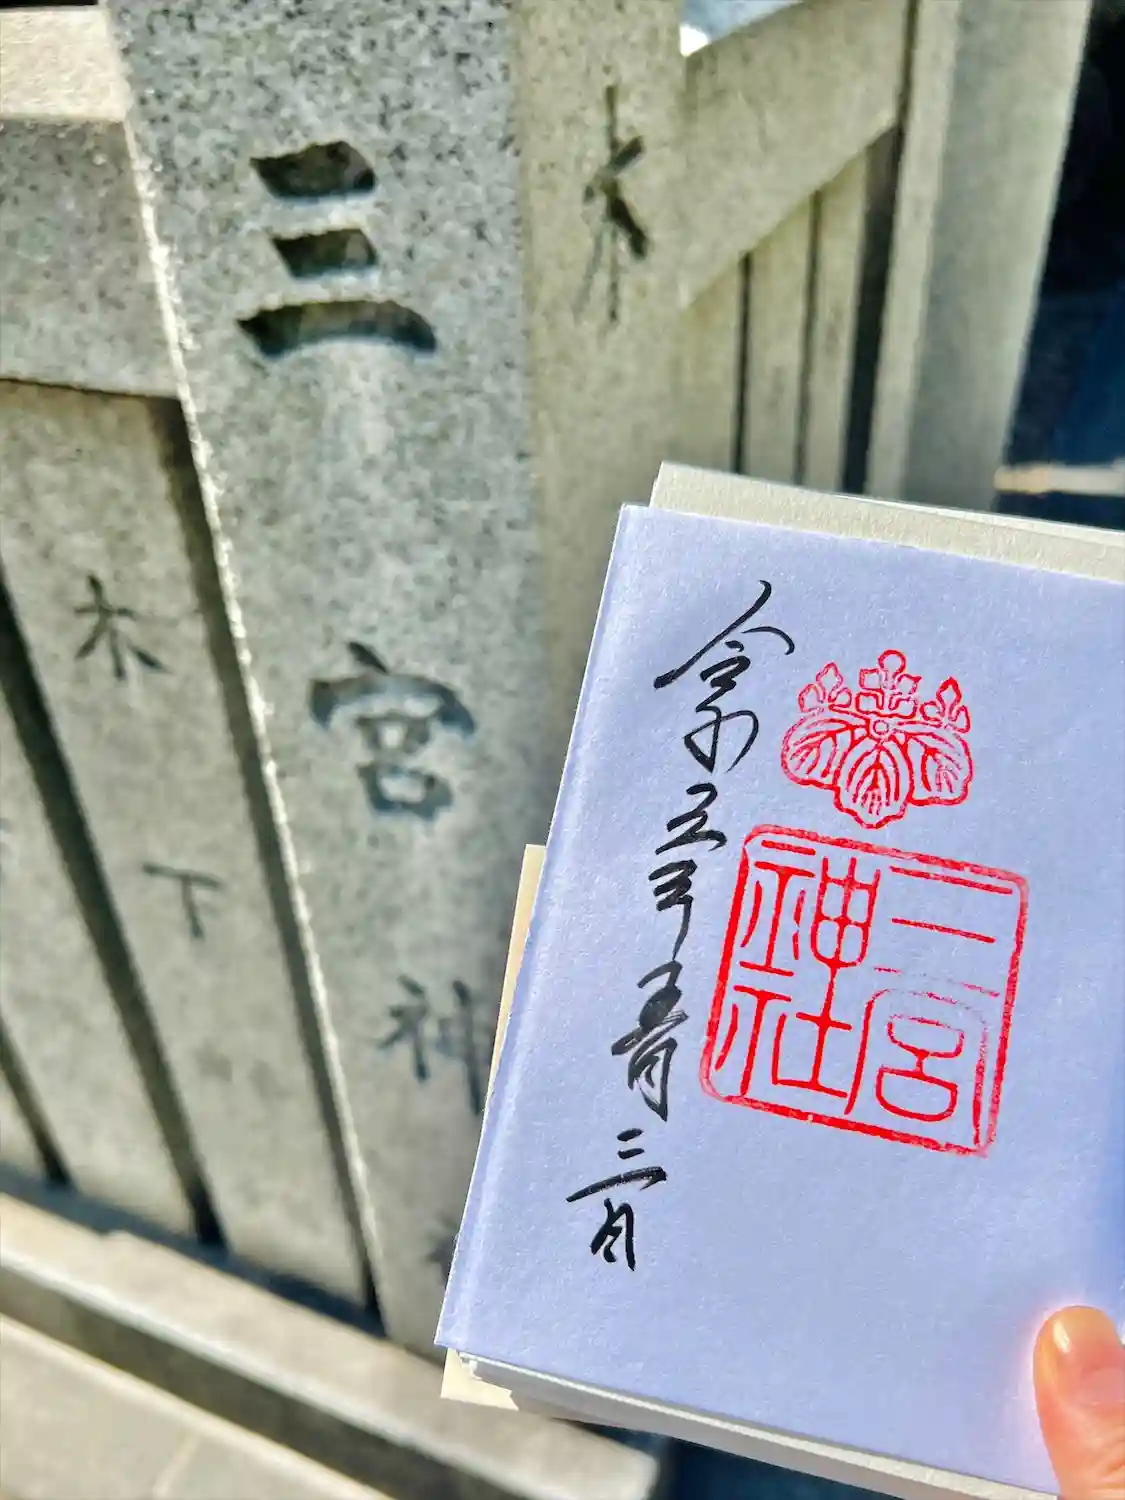 木
三宮神
木下
三宮
神社
令和五年五月三日